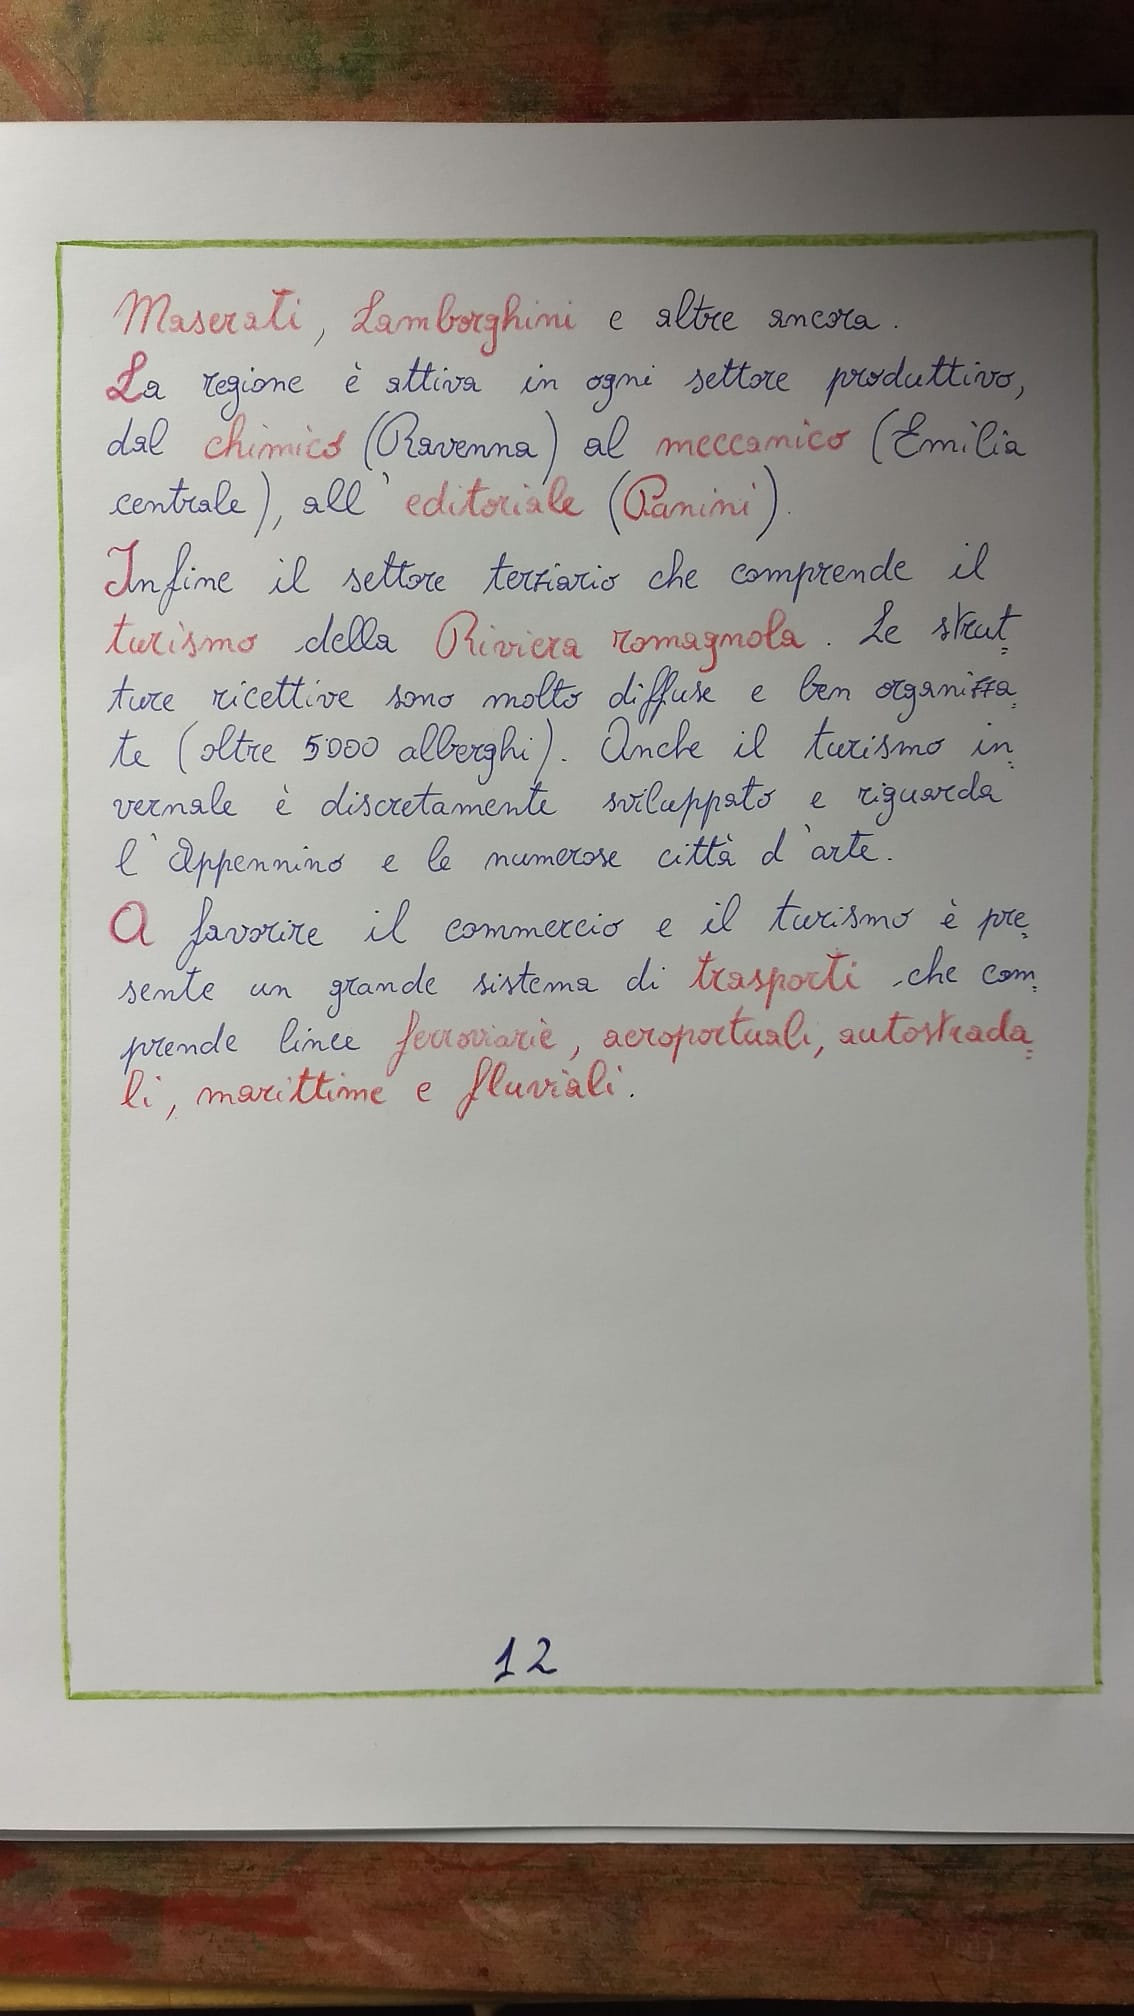 Maserati, Lamborghini e altre ancora.
La regione è attiva in ogni settore produttivo,
dal chimico (Ravenna) al meccanico (Emilia
centrale), all'editoriale (Panini).
Infine il settore terziario che comprende il
turismo della Riviera romagnola. Le strut=
ture ricettive sono molto diffuse e ben organizza=
te (oltre 5000 alberghi). Anche il turismo in=
vernale è discretamente sviluppato e riguarda
l'Appennino e le numerose città d'arte.
A favorire il commercio e il turismo è pre=
sente un grande sistema di trasporti che com=
prende linee ferroviarie, aeroportuali, autostrada=
li, marittime e fluviali.
12